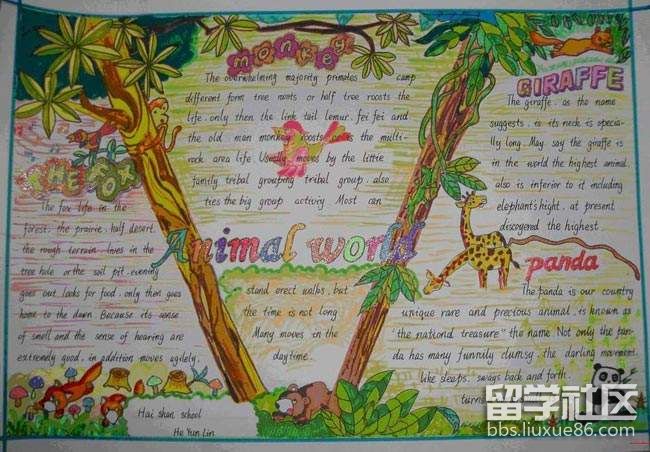 monkey
The overwhelming majority primates camp
different form tree nants or half tree roosts the
life. only then the link tail lemur. fei fei and
the old man monkey roosts or is the multi-
rock area life. Usually moves by the little
family tribal grouping tribal group also
ties the big group activiy. Most can
stand erect walks, but
the time is not long
Many moves in the
daytime.
Animal world
THE FOX
The fox life in the
forest. the prairie. half desert.
the rough terrain. lives in the
tree hole or the soil pit. evening
goes out. looks for food. only then goes
home to the dawn. Because its sense
of smell and the sense of hearing are
extremely good. in addition moves agilely.
Hai shan school
He Yun Lin
GIRAFFE
The giraffe. as the name
suggests. is its neck is specia-
lly long. May say the giraffe is
in the world the highest animal.
also is inferior to it including
elephant's hight. at present
discoyered the highest.
panda
The panda is our country
unique rare and precious animal. is known as
"the nationd treasure" the name. Not only the pan-
da has many funnily clumsy. the darling movement.
like sleeps. sways back and forth.
turns
留学社区
bbs.liuxue86.com